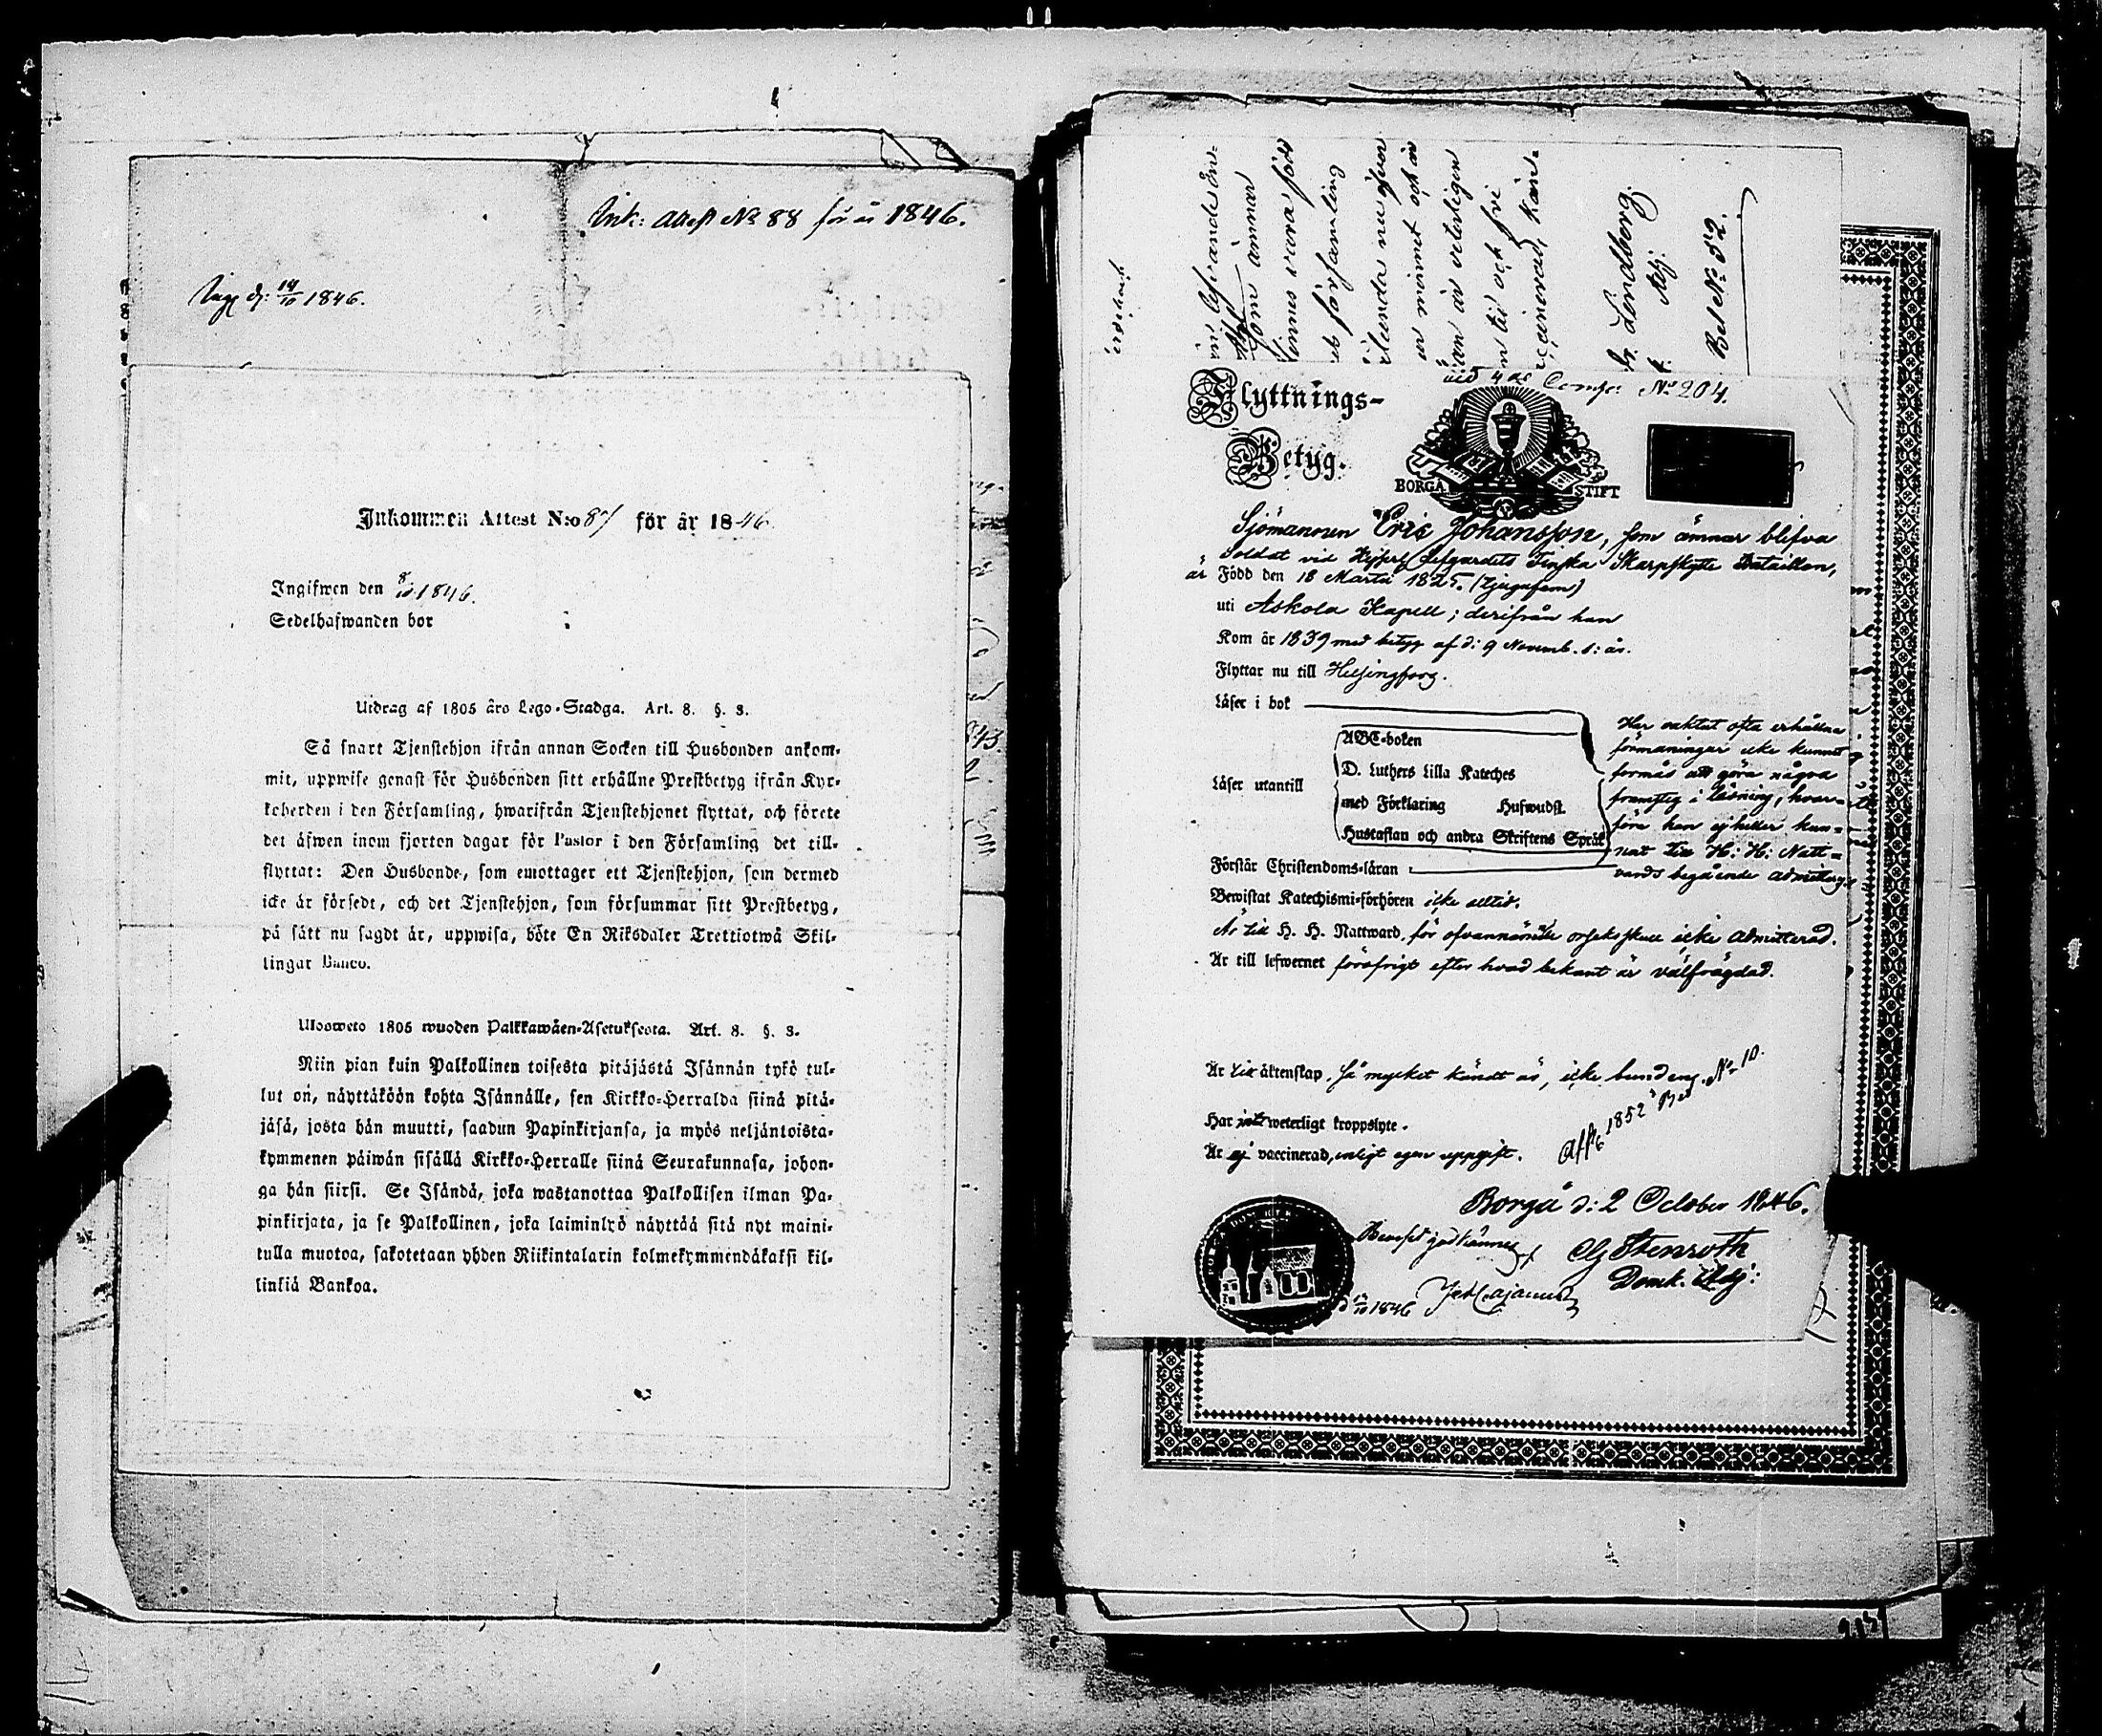 Ink: Attest No 88 för år 1846.
Ing. d: 14/10 1846.
Inkommen Attest N:o 87 för år 1846
Ingifwen den 8/10 1846.
Sedelhafwanden bor
Utdrag af 1805 års Lego-Stadga. Art. 8. §. 3.
Så snart Tjenstehjon ifrån annan Socken till Husbonden ankom-
mit, uppwise genast för Husbonden sitt erhållne Prestbetyg ifrån Kyr-
koherden i den Församling, hwarifrån Tjenstehjonet flyttat, och förete
det äfwen inom fjorton dagar för Pastor i den Församling det till-
flyttat: Den Husbonde, som emottager ett Tjenstehjon, som dermed
icke är försedt, och det Tjenstehjon, som försummar sitt Prestbetyg,
på sätt nu sagdt är, uppwisa, böte En Riksdaler Trettiotwå Skil-
lingar Banco.
Ulosweto 1805 wuoden Palkkawäen-Asetuksesta. Art. 8. §. 3.
Niin pian kuin Palkollinen toisesta pitäjästä Isännän tykö tul-
lut on, näyttäköön kohta Isännälle, sen Kirkko-Herralda siinä pitä-
jäsä, josta hän muutti, saadun Papinkirjansa, ja myös neljäntoista-
kymmenen päiwän sisällä Kirkko-Herralle siinä Seurakunnasa, johon-
ga hän siirsi. Se Isändä, joka wastanottaa Palkollisen ilman Pa-
pinkirjata, ja se Palkollinen, joka laiminlyö näyttää sitä nyt maini-
tulla muotoa, sakotetaan yhden Riikintalarin kolmekymmendäkaksi kil-
linkiä Bankoa.
som ämnar
finnes vara född
församling
och fri
vaccinerad, känd-
Lindberg.
Adj.
Bet No 52.
vid 4de Comp: No 204.
Flyttnings-
Betyg.
BORGÅ STIFT
Sjömannen Eric Johansson, som ämnar blifva
Soldat vid Lifgardets Finska Skarpskytte Bataillon,
är Född den 18 Martii 1825. (tjugufem)
uti Askola Kapell; derifrån han
Kom år 1839 med betyg af d: 9 Novemb. s: år.
Flyttar nu till Helsingfors.
Läser i bok
Läser utantill
ABC-boken
D. Luthers Lilla Kateches
med Förklaring Hufwudst.
Hustaflan och andra Skriftens Språk
Har oaktat ofta erhållna
förmaningar icke kunnat
förmås att göra några
framsteg i läsning, hvar-
före han ej heller kun-
nat till H: H: Natt-
vards begående admitteras
Förstår Christendoms-läran
Bewistat Katechismi-förhören icke alltid.
Är till H. H. Nattward, för ofvannämnde orsaks skull icke admitterad.
Är till lefwernet för öfrigt efter hvad bekant är välfrägdad.
Är till äktenskap, så mycket kändt är, icke bunden.
Har icke weterligt kroppslyte.
Är ej vaccinerad, enligt egen uppgift.
Aff: 1852 Bet No 10.
Borgå d: 2 October 1846.
Stenroth
Domk. Adj:
1846 Cajanus